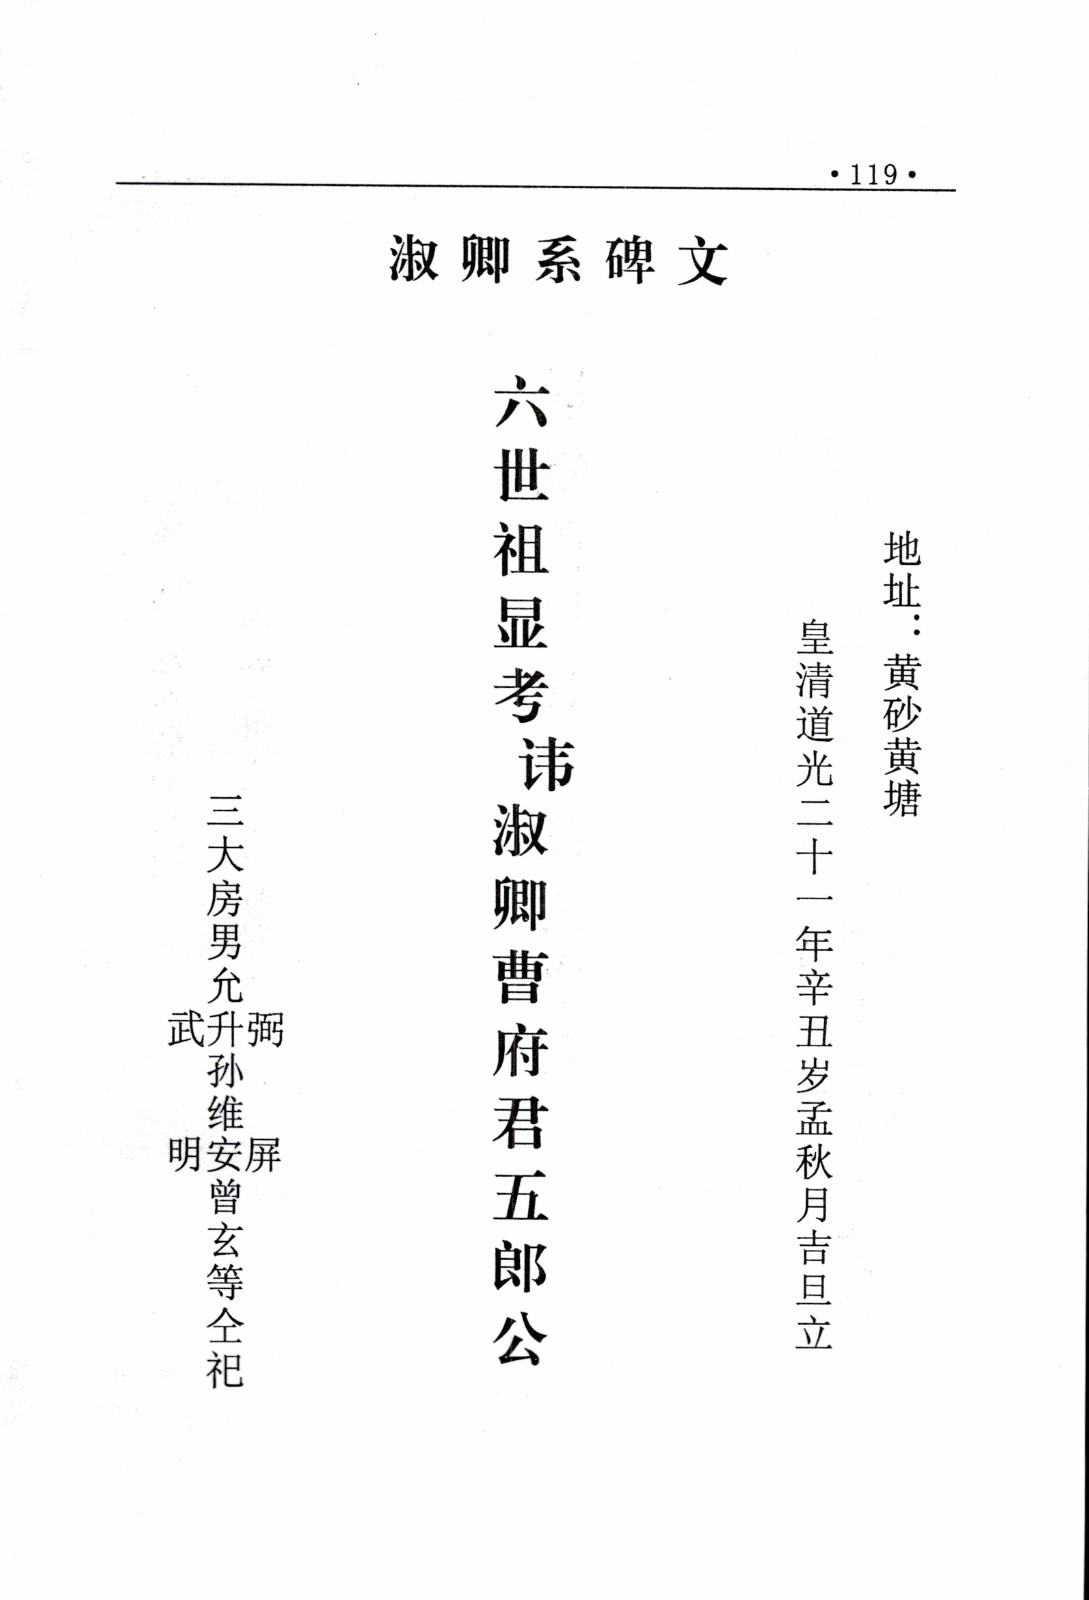 ·119·
淑卿系碑文
地址：黄砂黄塘
皇清道光二十一年辛丑岁孟秋月吉旦立
六世祖显考讳淑卿曹府君五郎公
三大房男允弼升武孙维屏安明曾玄等仝祀